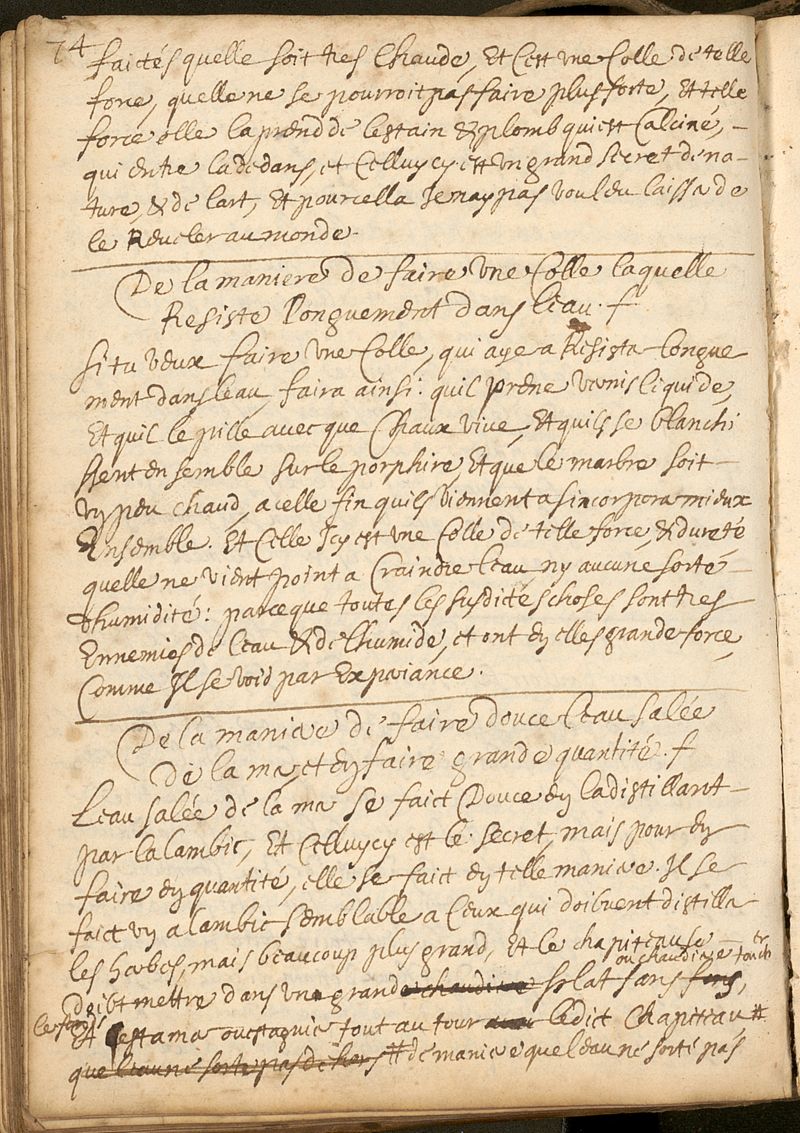 74
faictés quelle soit tres Chaude, Et C'est vne Colle de telle
force, quelle ne se pourroit pas faire plus forte, Et telle
force elle la prend de lestain & plomb qui est Calciné, -
qui entre la dedans, et Celluy cy est vn grand secret de na-
ture, & de l'art, Et pour cella Je nay pas vouleu laissa de
le Reveler au monde.
De la maniere de faire vne Colle laquelle
Resiste Longuement dans l'eau. f
Si tu veux faire vne Colle, qui aye a Resista longue
ment dans leau, faira ainsi: quil prene vernis liquide,
Et quil le pille avec que Chaux vive, Et quils se blanchi
sient ensemble sur le porphire, Et que le marbre soit
vn peu chaud, a celle fin quils viennent a sincorpora mieux
Ensemble. Et Celle Icy est vne Colle de telle force, & dureté
quelle ne vient point a Craindre leau, ny aucune sorte
d'humidité: parce que toutes les susdites choses sont tres
Ennemies de l'eau & de l'humide, et ont en elles grande force,
Comme Il se void par Experiance.
De la maniere de faire douce l'eau salée
de la mer, et en faire grande quantité. f
L'eau salée de la mer se faict Douce en la distillant
par lalambic, Et Celluy cy est le secret, mais pour en
faire en quantité, elle se faict en telle maniere. Il se
faict vn alambic semblable a Ceux qui doibuent distilla
les herbes, mais beaucoup plus grand, Et le chapiteau se
ou chaudiere
doibt mettre dans vne grande chaudiere plat sans fons,
Et tout au tour ledict Chapiteau #
que leau ne sorte pas dehors # de maniere que leau ne sorte pas